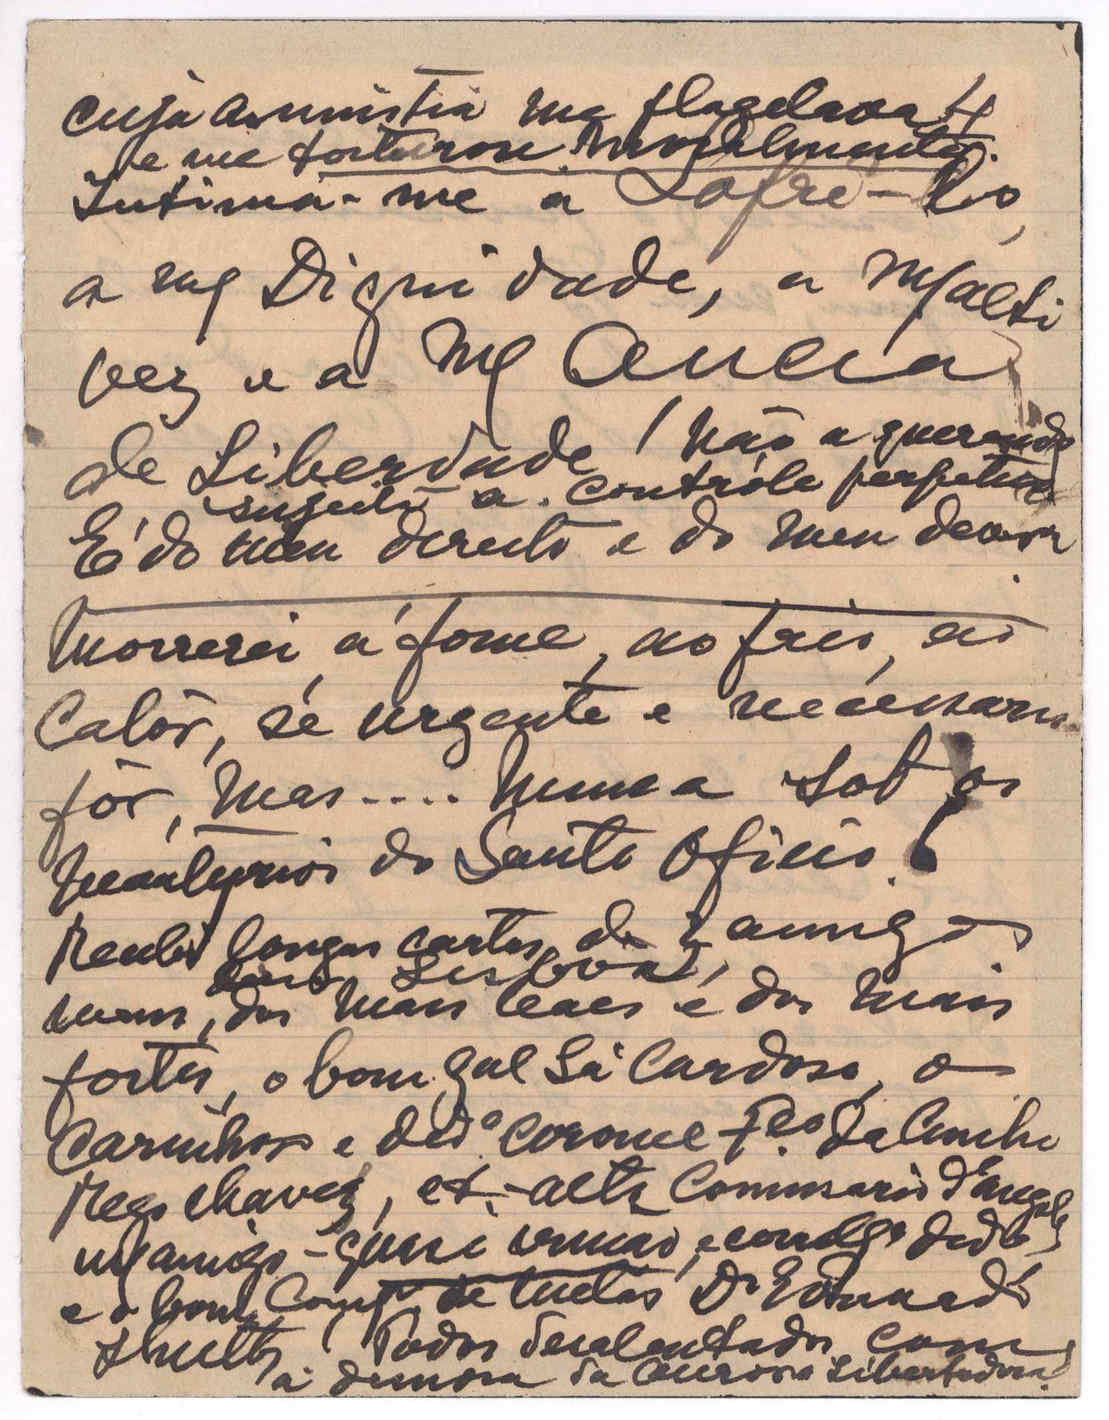 cuja amnistia me flagelava
e me torturou moralmente.
Intima-me a Sofre-lo,
a mª Dignidade, a mª alti
vez e a mª Ancia
de Liberdade! Não a querendo
sujeita a contróle perpetuo
E' do meu direito e do meu dever
Morrerei á fome, ao frio, ao
Calôr, se urgente e necessario
fôr, mas.... Nunca sob os
do Santo Oficio!
Recebi longas cartas de 3 amigos
Lisboa,
meus, dos mais leaes e dos mais
fortes, o bom gal Sá Cardoso, o
Carinhoso e coronel Fco da Cunha
Rego Chaves, ex-alto Comissario d'Angola
mº amigo-quasi irmão,
e o bom Compº de lutas Dr Eduardo
Todos desalentados com
a demora da Aurora Libertadora!